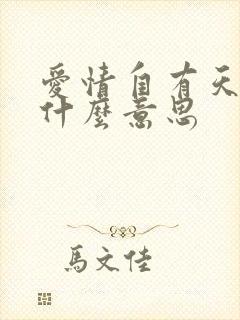 愛情自有天
什麼意思
馬文佳